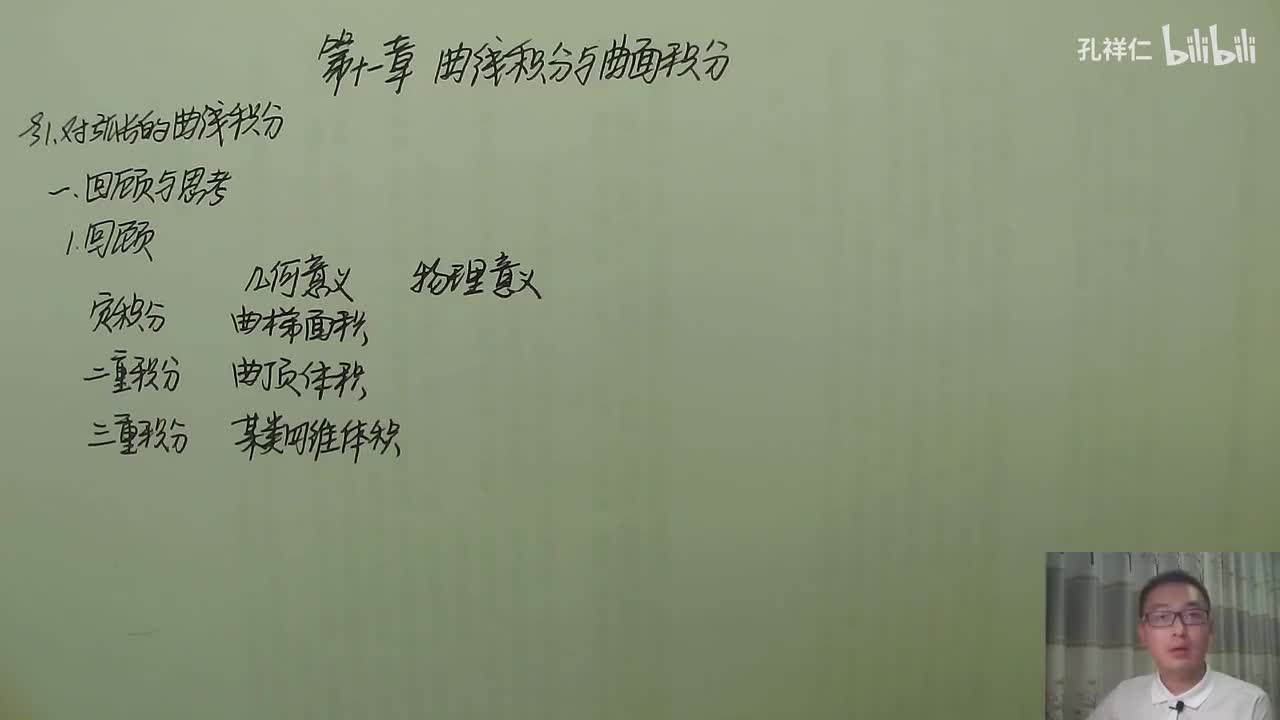 孔祥仁 bilibili
第十一章 曲线积分与曲面积分
§1.对弧长的曲线积分
一.回顾与思考
1.回顾
几何意义 物理意义
定积分 曲梯面积
二重积分 曲顶体积
三重积分 某类四维体积